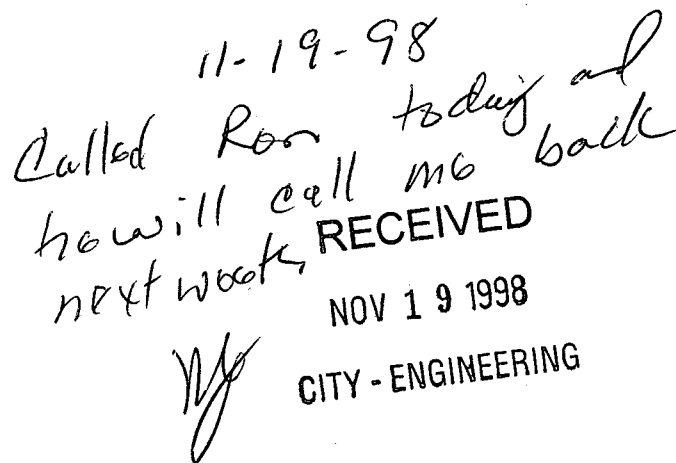 11-19-98
Called Ron today and
he will call me back
next week,
RECEIVED
NOV 19 1998
CITY - ENGINEERING